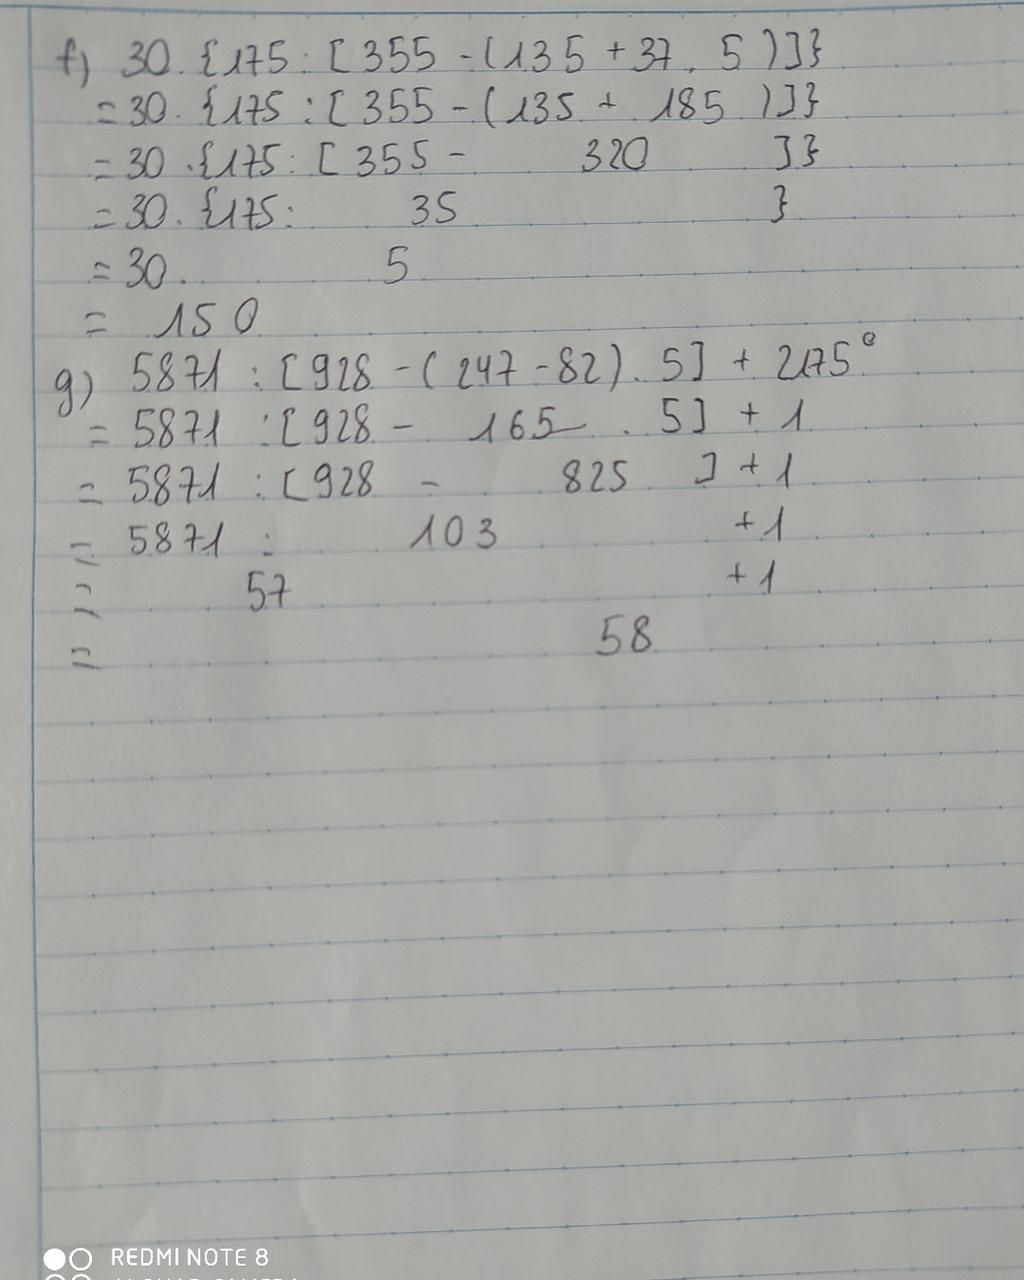 f) 30. {175 : [355 - (135 + 37. 5)]}
= 30. {175 : [355 - (135 + 185)]}
= 30 .{175 : [355 - 320 ]}
= 30. {175 : 35 }
= 30. 5
= 150
g) 5871 : [928 - (247 - 82). 5] + 2175⁰
= 5871 : [928 - 165 . 5] + 1
= 5871 : [928 - 825 ] + 1
= 5871 : 103 + 1
= 57 + 1
= 58
REDMI NOTE 8